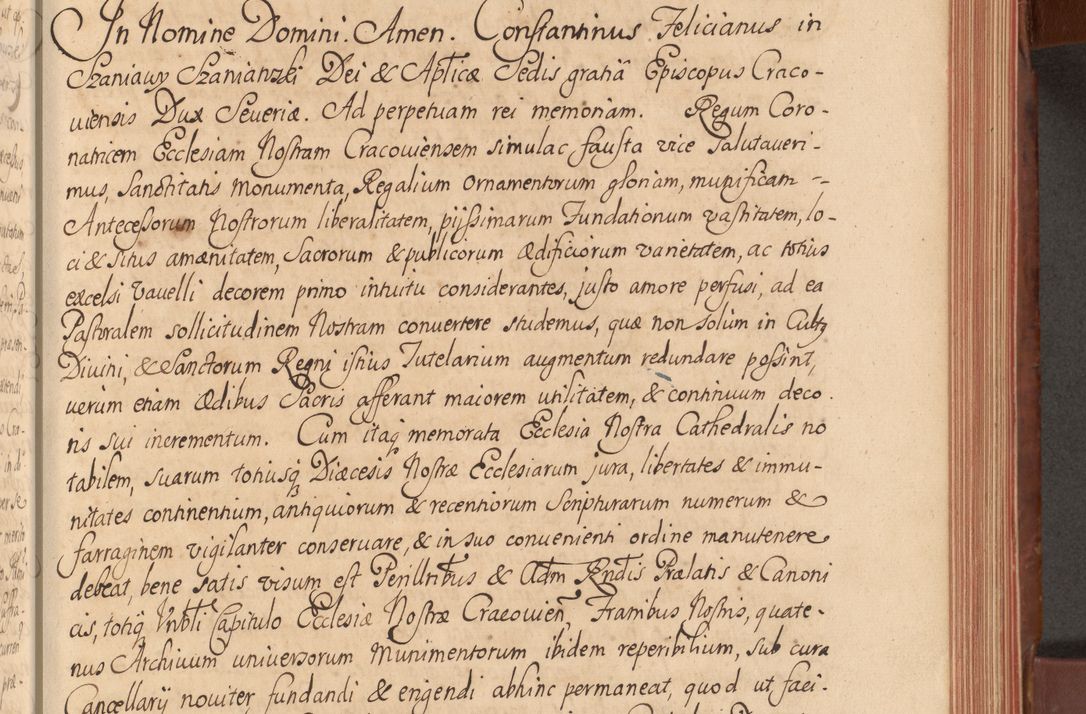 In Nomine Domini. Amen. Constantinus Felicianus in
Szaniawy Szaniawski Dei & Aplicæ Sedis gratiâ Episcopus Craco-
uiensis Dux Seueriæ. Ad perpetuam rei memoriam. Regum Coro-
natricem Ecclesiam Nostram Cracouiensem simulac fausta vice Salutaueri-
mus, Sanctitatis monumenta, Regalium ornamentorum gloriam, munificam
Antecessorum Nostrorum liberalitatem, pijssimarum Fundationum vastitatem, lo-
ci & situs amænitatem, Sacrorum & publicorum ædificiorum varietatem, ac totius
excelsi Vauelli decorem primo intuitu considerantes, justo amore perfusi, ad ea
Pastoralem sollicitudinem Nostram conuertere studemus, quæ non solùm in Cultũ
Diuini, & Sanctorum Regni istius Tutelarium augmentum redundare possint,
uerùm etiam Ædibus Sacris afferant maiorem utilitatem, & continuum deco
ris sui incrementum. Cum itaq memorata Ecclesia Nostra Cathedralis no
tabilem, suarum totiusq Diæcesis Nostræ Ecclesiarum jura, libertates & immu-
nitates continentium, antiquiorum & recentiorum Scripturarum numerum &
farraginem vigilanter conseruare, & in suo conuenienti ordine manutenere
debeat, bene satis visum est Perillribus & Adm Rndis Prælatis & Canoni
cis, totiq Vnbli Capitulo Ecclesiæ Nostræ Cracouien, Fratribus Nostris, quate-
nus Archiuum uniuersorum Munimentorum ibidem reperibilium, sub cura
Cancellarij nouiter fundandi & erigendi abhinc permaneat, quod ut faci-